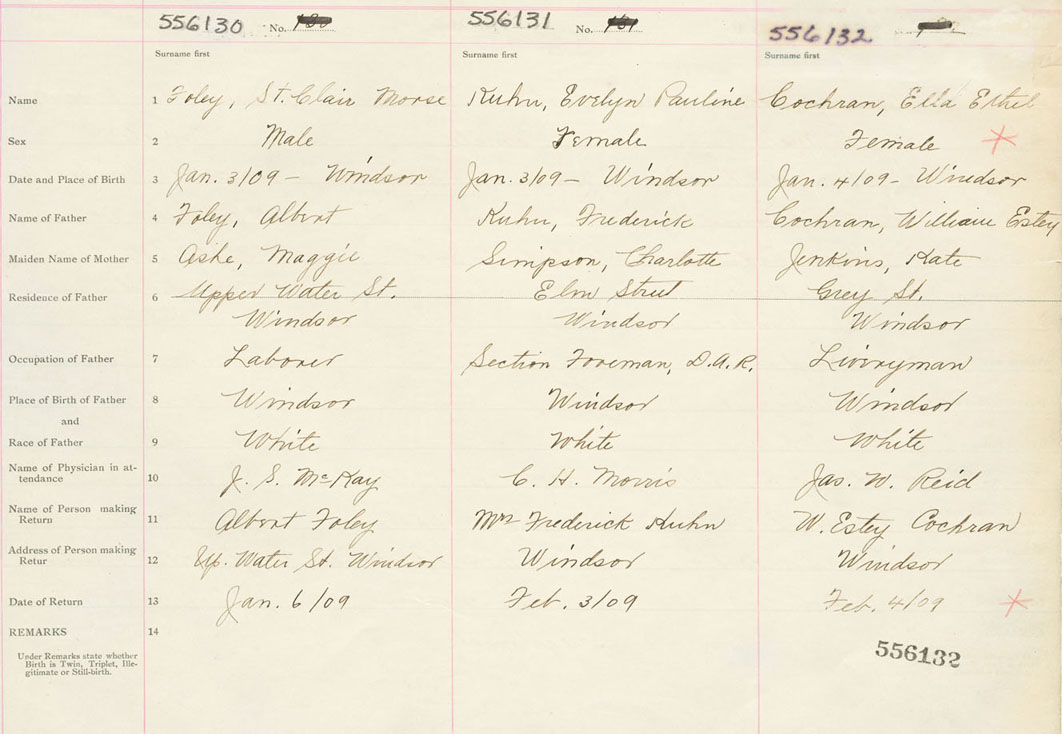 556130 No. 130 556131 No. 131 556132
Surname first Surname first Surname first
Name 1 Foley, St. Clair Morse Kuhn, Evelyn Pauline Cochran, Ella Ethel
Sex 2 Male Female Female
Date and Place of Birth 3 Jan. 3/09 - Windsor Jan. 3/09 - Windsor Jan. 4/09 - Windsor
Name of Father 4 Foley, Albert Kuhn, Frederick Cochran, William Estey
Maiden Name of Mother 5 Ashe, Maggie Simpson, Charlotte Jenkins, Kate
Residence of Father 6 Upper Water St. Elm Street Grey St.
Windsor Windsor Windsor
Occupation of Father 7 Laborer Section Foreman, D.A.R. Liveryman
Place of Birth of Father 8 Windsor Windsor Windsor
and
Race of Father 9 White White White
Name of Physician in at-
tendance 10 J. S. McKay C. H. Morris Jas. W. Reid
Name of Person making
Return 11 Albert Foley Mrs Frederick Kuhn W. Estey Cochran
Address of Person making
Retur 12 Up. Water St. Windsor Windsor Windsor
Date of Return 13 Jan. 6/09 Feb. 3/09 Feb. 4/09
REMARKS 14
Under Remarks state whether
Birth is Twin, Triplet, Ille-
gitimate or Still-birth.
556132